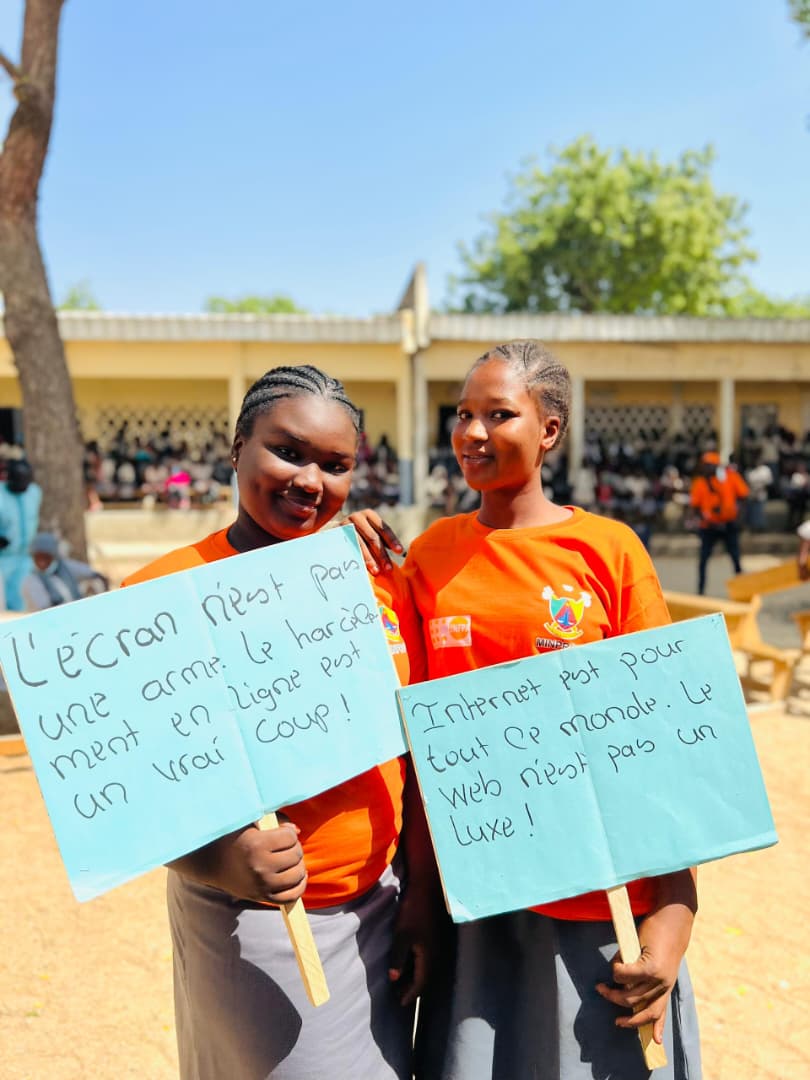 L'écran n'est pas
une arme. Le harcèle
ment en ligne est
un vrai coup!
UNFPA
Internet est pour
tout le monde. Le
web n'est pas un
luxe!